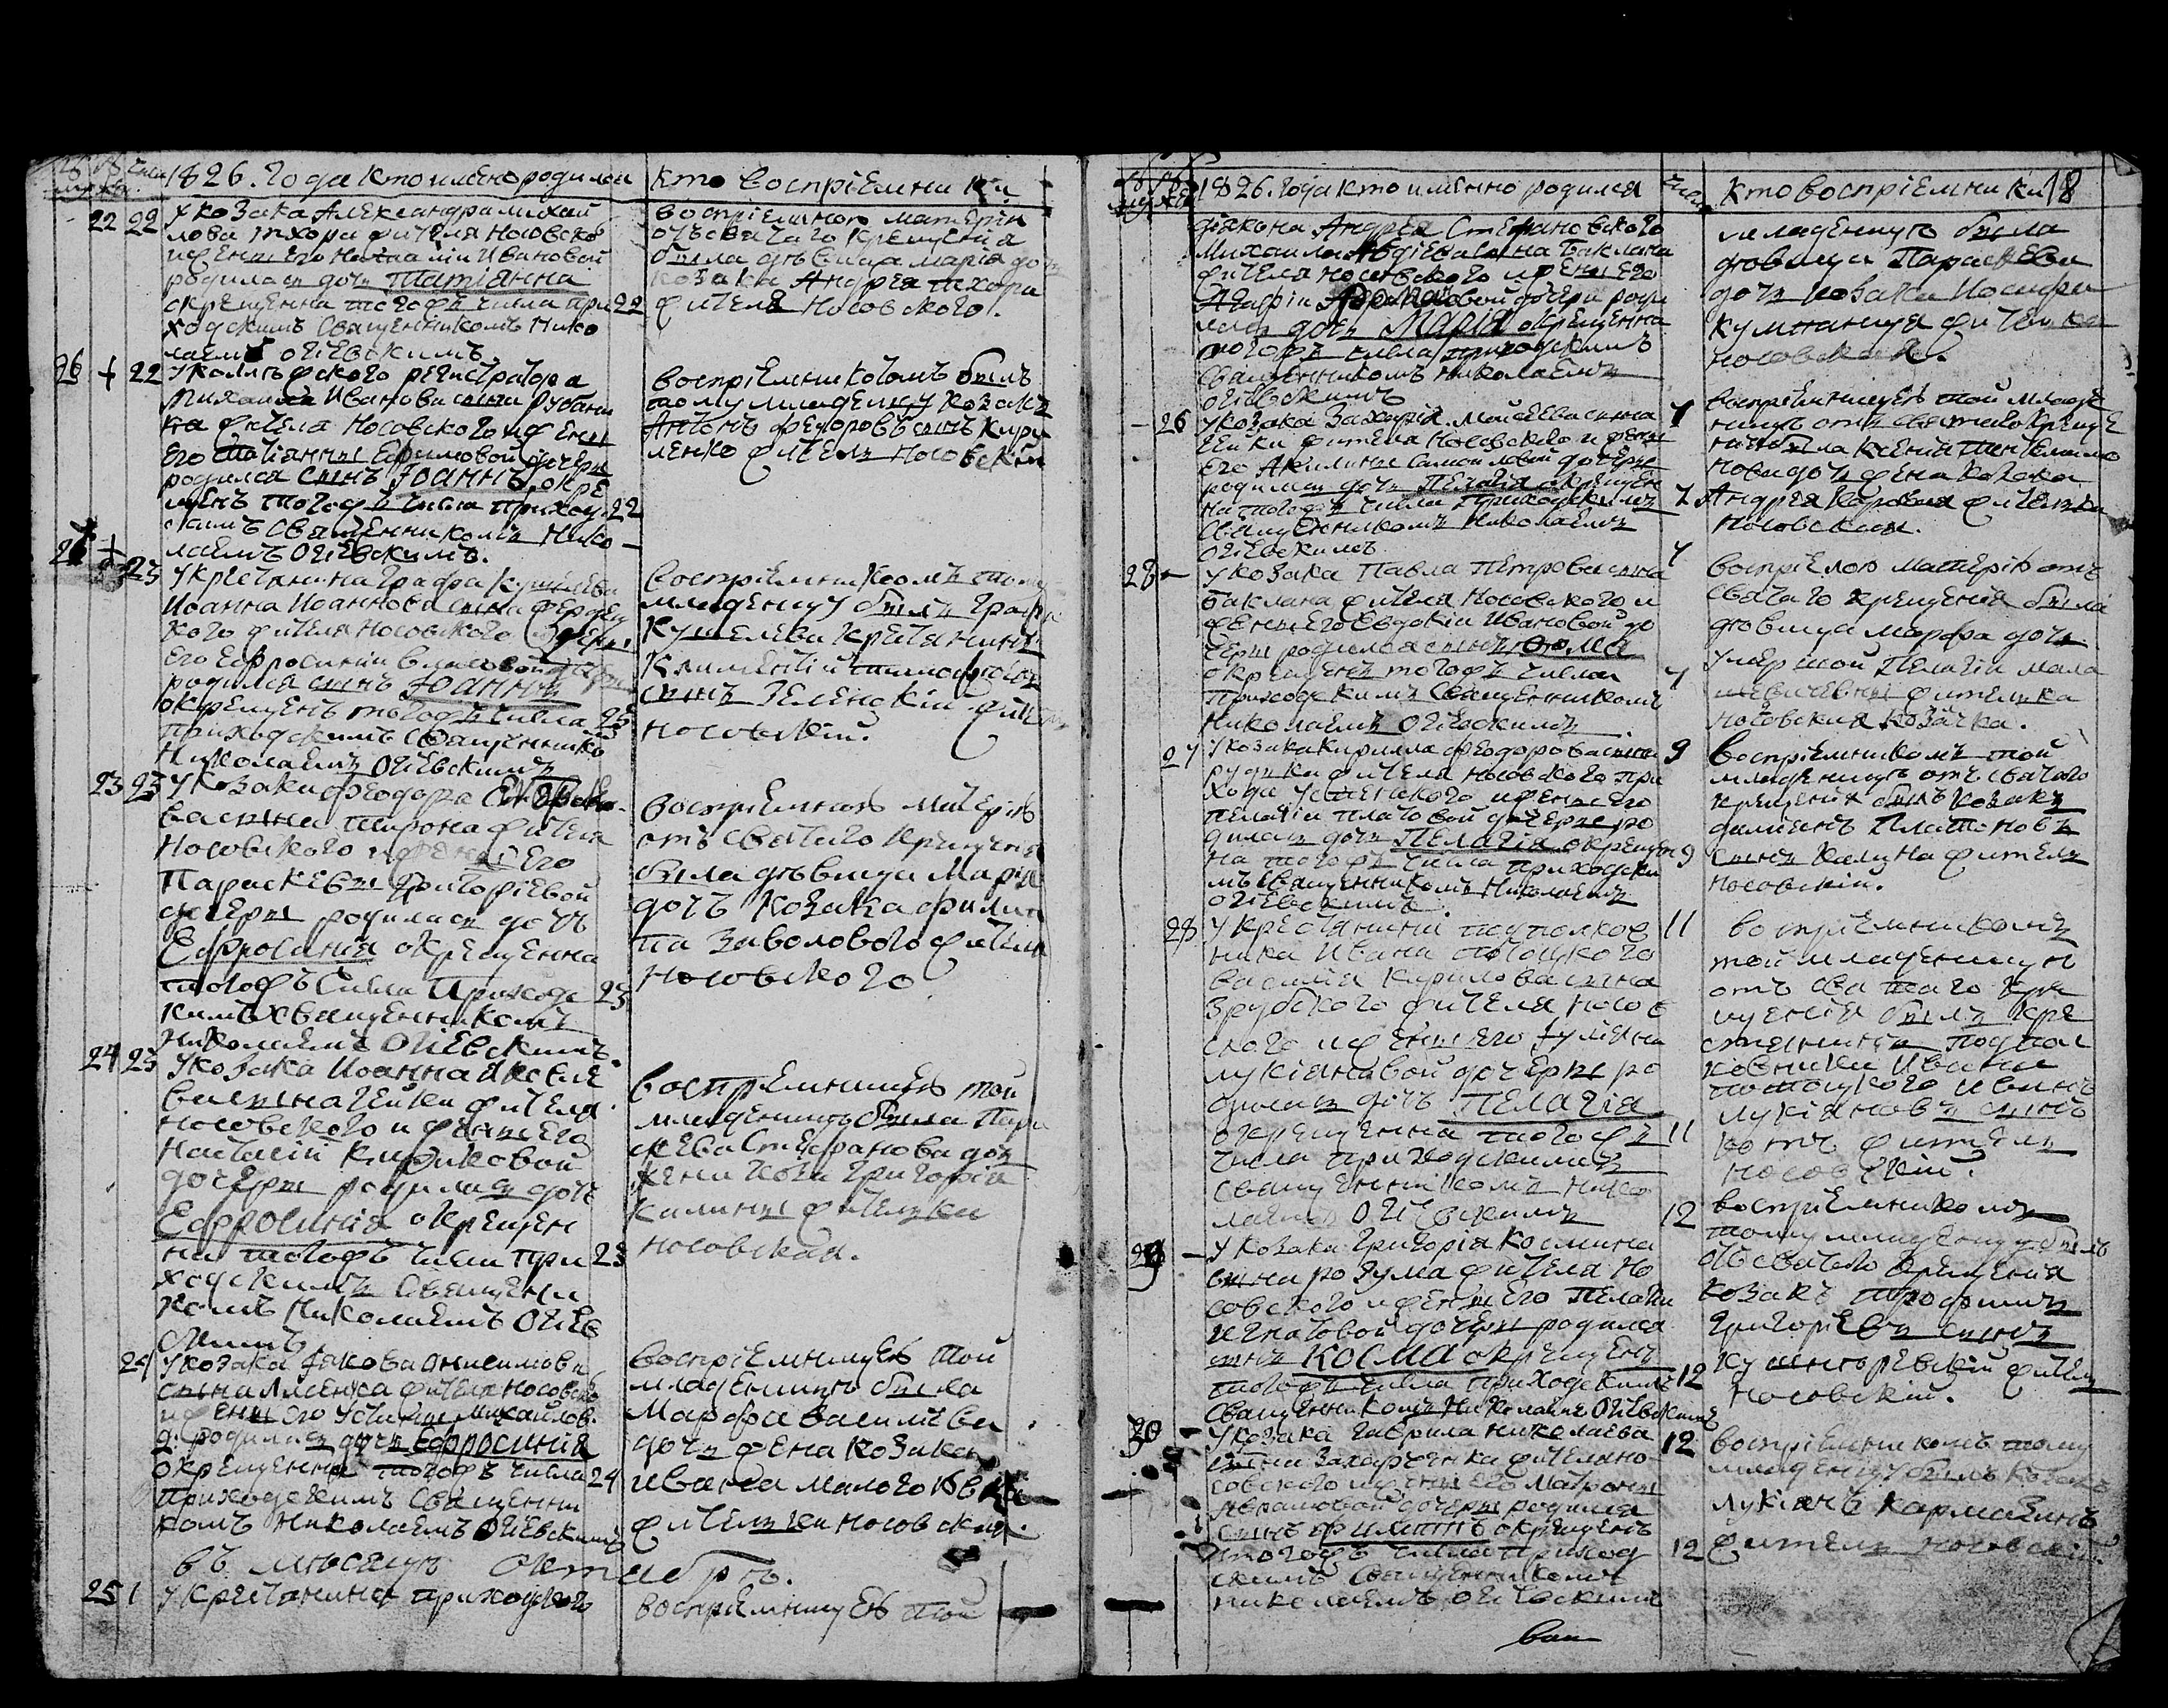 1826. Года кто имено родился
кто воспріемники
22 22 У козака Александра Михай
лова Тхора жителя Носовско
и жены его Наталіи Ивановой
родилася дочь Татіянна
окрещенна того жъ числа при 22
ходскимъ Священникомъ Нико
лаемъ Огіевскимъ
воспріемною матерію
отъ святаго крещенія
была девица Марія дочь
козака Андрея Тхора
жителя Носовского.
26 22 У коллежского регистратора
Михаила Иванова сына Рубан
ка жителя Носовского и жены
его Татіянны Ефимовой дочери
родился сынъ Іоаннъ окре
щенъ того жъ числа приход 22
скимъ Священникомъ Нико
лаемъ Огіевскимъ.
воспріемникомъ былъ
тому младенцу козакъ
Антонъ Федоровъ сынъ Кири
ленко житель Носовскій
23 У крестянина Графа Кушелева
Иоанна Иоаннова сына
кого жителя Носовского
его Ефросиніи Власовой
родился сынъ Іоаннъ
окрещенъ того жъ числа 23
приходскимъ Священнико
Николаемъ Огіевскимъ
воспріемникомъ тому
младенцу былъ Графа
Кушелева крестянинъ
Климентій Тимофеевъ
сынъ Зеленскій жител
Носовскій.
23 23 У козака Феодора
ва сына Шарона жителя
Носовского и жены его
Параскевы Григоріевой
дочеры родилася дочь
Ефросинія окрещенна
того жъ числа Приходс 23
кимъ Священникомъ
Николаемъ Огіевскимъ.
воспріемною матерію
отъ Святаго крещенія
была девица Марія
дочь козака Филип
па Заволового жителя
Носовского
24 23 У козака Иоанна Яковле
ва сына Гейки жителя
Носовского и жены его
Наталіи Кириковой
дочеры родилася дочь
Ефросинія окрещен
на того жъ числа при 23
ходскимъ Священни
комъ Николаемъ Огіев
скимъ
воспріемницею той
младеницы была Пара
скева Стефанова дочь
жена козака Григорія
Калины жителька
Носовская.
24 У козака Якова Онисимова
сына Ляшенка жителя Носовско
и жены его Устины Михайлов.
д. родилася дочь Ефросинія
окрещенна того жъ числа 24
приходскимъ Священни
комъ Николаемъ Огіевскимъ
воспріемницею той
младеницы была
Марфа Василіева
дочь жена козака
Ивана Малого
жителька Носовская.
въ месяце Октобре.
25 1 У крестянина приходского
воспріемницею той
1826. года кто именно родился
кто воспріемники 18
діякона Андрея Стефановского
Михаила Авдіева сына Баклана
жителя Носовского и жены его
Агафіи Романовой дочери роди
лась дочь Марія окрещенна
того жъ числа приходскимъ
Священникомъ Николаемъ
Огіевскимъ
младеницы была
девица Параскева
дочь козака Иосифа
жителька
Носовская.
26 У козака Захарія Мойсеева сына 7
Гейки жителя Носовского и жены
его Акилины Самойловой дочери
родилась дочь Пелагія окрещен
на того жъ числа Приходскимъ 7
Священникомъ Николаемъ
Огіевскимъ
воспріемницею той младе
ницы отъ святаго креще
нія была Ксенія
нова дочь жена козака
Андрея жителька
Носовская.
28 У козака Павла Петрова сына 7
Баклана жителя Носовского и
жены его Евдокіи Ивановой до
чери родился сынъ Фома
окрещенъ того жъ числа 7
Приходскимъ Священникомъ
Николаемъ Огіевскимъ.
воспріемною матерію отъ
святаго крещенія была
девица Марфа дочь
умершой Пелагіи Мала
шевичевны жителька
Носовская козачка.
27 У козака Кирилла Феодорова сына 9
Рудика жителя Носовского при
хода Успенского и жены его
Пелагіи Платовой дочери ро
дилась дочь Пелагія окрещен 9
на того жъ числа приходски
мъ Священникомъ Николаемъ
Огіевскимъ.
воспріемникомъ той
младеницы отъ святаго
крещенія былъ козакъ
Даміянъ Платоновъ
сынъ Калина житель
Носовскій.
28 У крестянина подполков 11
ника Ивана Потоцкого
Василія Кирилова сына
Зруб­ского жителя Носов
ского и жены его Іуліянны
Лукіяновой дочери ро
дилась дочь Пелагія
окрещенна того жъ 11
числа приходскимъ
Священникомъ Нико
лаемъ Огіевскимъ
воспріемникомъ
той младеницы
отъ святаго кре
щенія былъ кре
стянинъ подпол
ковника Ивана
Потоцкого Иванъ
Лукіяновъ сынъ
житель
Носовскій.
29 У козака Григорія Косміна 12
сына Розума жителя Но
совского и жены его Пелагіи
Игнатовой дочеры родился
сынъ Косма окрещенъ
того жъ числа приходскимъ 12
Священникомъ Николаемъ Огіевскимъ
воспріемникомъ
тому младенцу былъ
отъ святаго крещенія
козакъ Трофимъ
Григоріевъ сынъ
Кушнеревскій житель
Носовскій.
30 У козака Гаврила Николаева 12
сына Захарченка жителя Но
совского и жены его Матроны
Аврамовой дочеры родился
сынъ Филиппъ окрещенъ
того жъ числа приход 12
скимъ Священникомъ
Николаемъ Огіевскимъ
воспріемникомъ тому
младенцу былъ козакъ
Лукіянъ Кармазинъ
житель Носовскій.